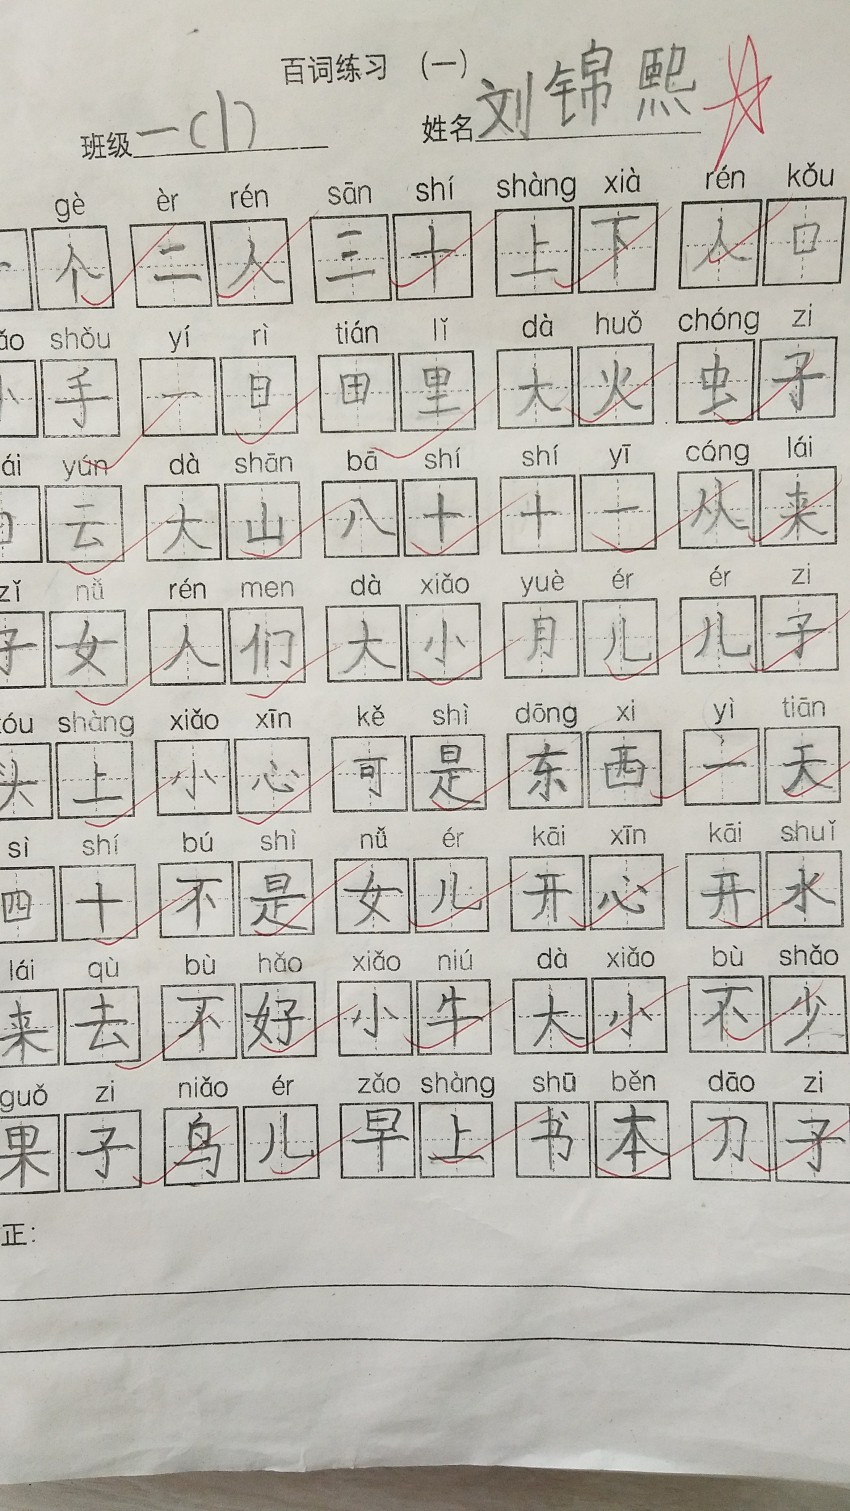 百词练习 （一）
班级一（1） 姓名刘锦熙
gè èr rén sān shí shàng xià rén kǒu
个 二人 三十 上下 人口
shǒu yí rì tián lǐ dà huǒ chóng zi
手 一日 田里 大火 虫子
yún dà shān bā shí shí yī cóng lái
云 大山 八十 十一 从来
zǐ nǚ rén men dà xiǎo yuè ér ér zi
子女 人们 大小 月儿 儿子
tóu shàng xiǎo xīn kě shì dōng xi yì tiān
头上 小心 可是 东西 一天
sì shí bú shì nǚ ér kāi xīn kāi shuǐ
四十 不是 女儿 开心 开水
lái qù bù hǎo xiǎo niú dà xiǎo bù shǎo
来去 不好 小牛 大小 不少
guǒ zi niǎo ér zǎo shàng shū běn dāo zi
果子 鸟儿 早上 书本 刀子
正：